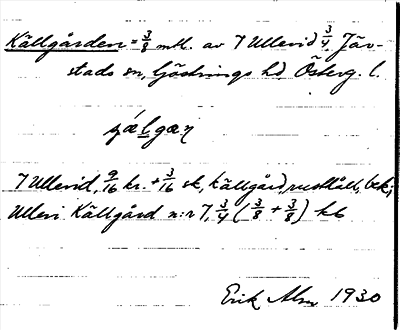 Källgården = 3/8 mtl. av 7 Ullevid 3/4, Jär-
stads sn, Göstrings hd, Österg. l.
7 Ullevid, 9/16 kr. + 3/16 sk, Källgård, rusthåll, bek;
Ulleri Källgård n:r 7, 3/4 (3/8 + 3/8) kb
Erik Alm 1930